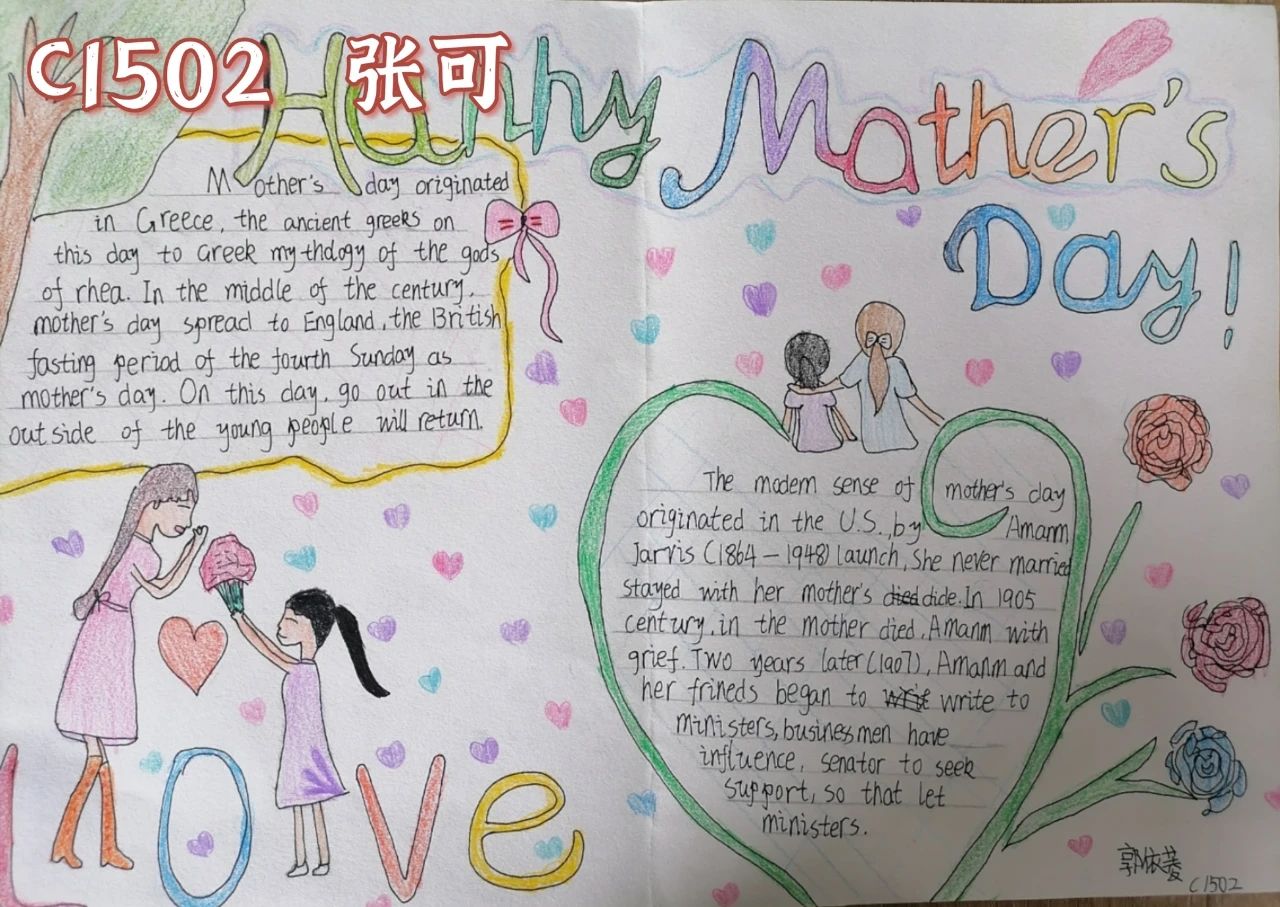 C1502 张可
Happy Mother's
Day!
Mother's day originated
in Greece, the ancient greeks on
this day to Greek mythdogy of the gods
of rhea. In the middle of the century,
mother's day spread to England, the British
fasting period of the fourth Sunday as
mother's day. On this day, go out in the
outside of the young people will return.
The modem sense of mother's day
originated in the U.S., by Amanm
Jarvis (1864-1948) launch, She never married
stayed with her mother's died dide. In 1905
century, in the mother died, Amanm with
grief. Two years later (1907), Amanm and
her frineds began to write to
ministers, business men have
influence, senator to seek
support, so that let
ministers.
Love
郭依菱
C1502